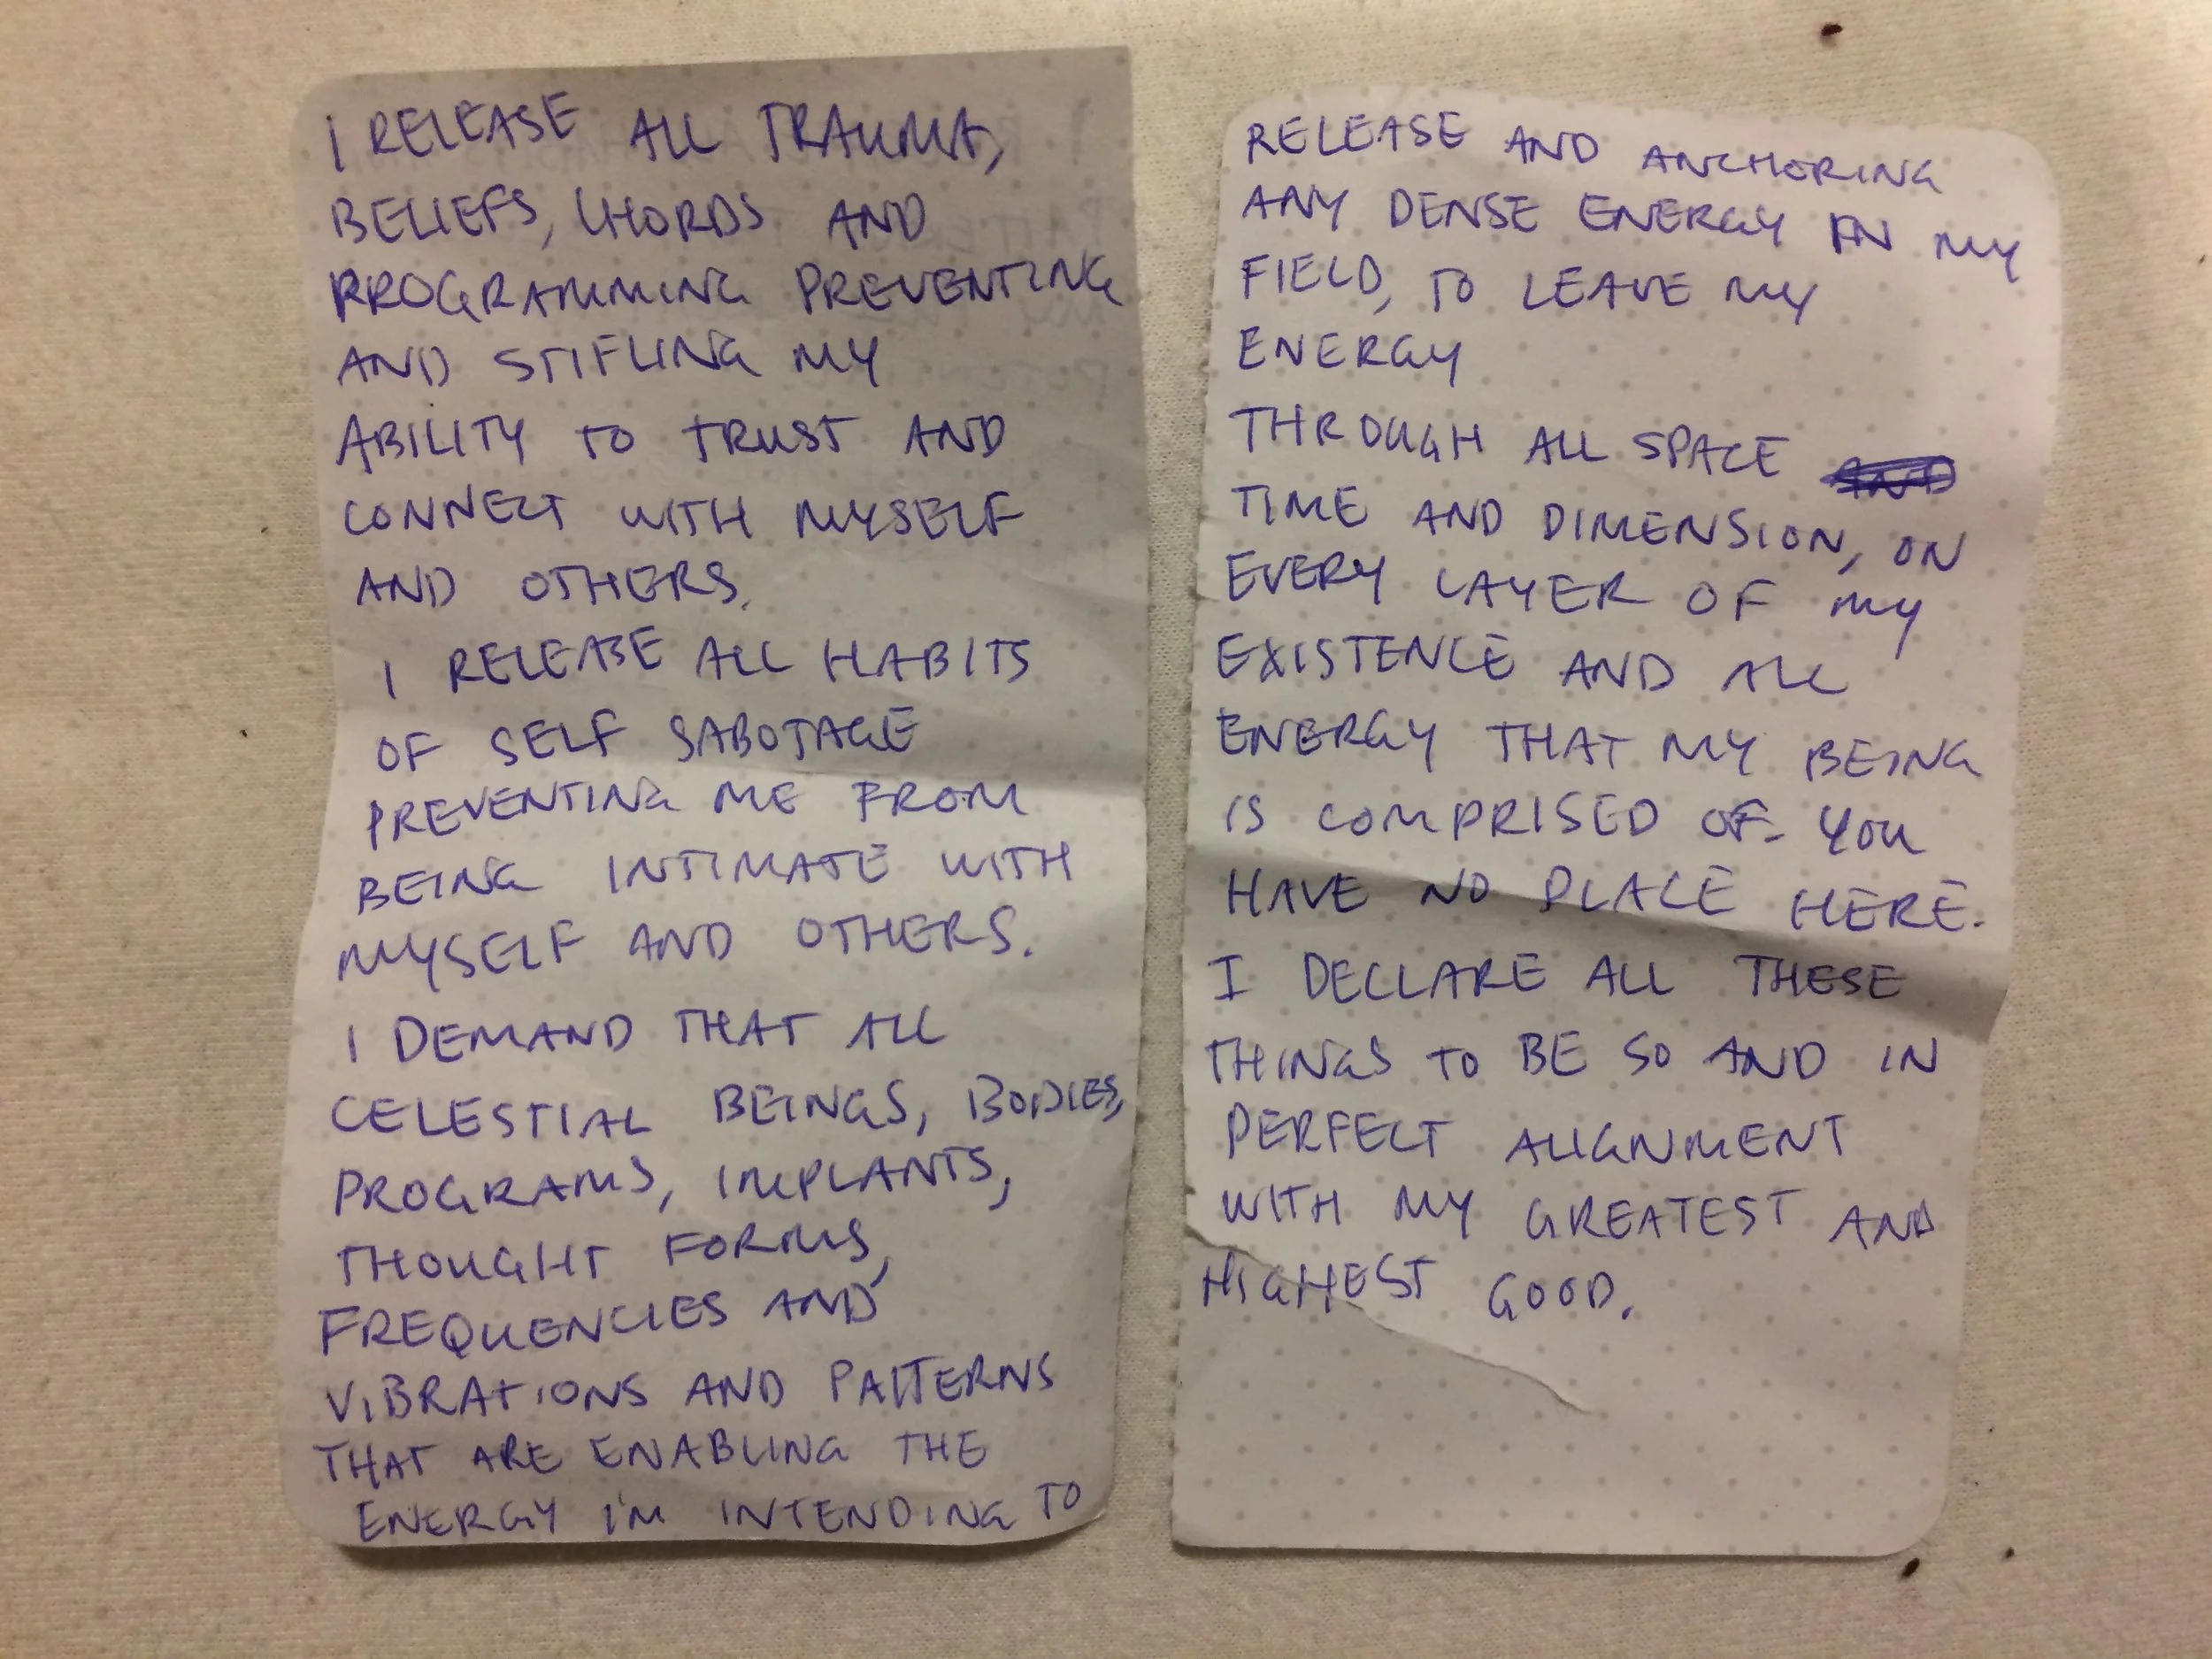 I RELEASE ALL TRAUMA,
BELIEFS, CHORDS AND
PROGRAMMING PREVENTING
AND STIFLING MY
ABILITY TO TRUST AND
CONNECT WITH MYSELF
AND OTHERS.
I RELEASE ALL HABITS
OF SELF SABOTAGE
PREVENTING ME FROM
BEING INTIMATE WITH
MYSELF AND OTHERS.
I DEMAND THAT ALL
CELESTIAL BEINGS, BODIES,
PROGRAMS, IMPLANTS,
THOUGHT FORMS,
FREQUENCIES AND
VIBRATIONS AND PATTERNS
THAT ARE ENABLING THE
ENERGY I'M INTENDING TO
RELEASE AND ANCHORING
ANY DENSE ENERGY IN MY
FIELD, TO LEAVE MY
ENERGY
THROUGH ALL SPACE AND
TIME AND DIMENSION, ON
EVERY LAYER OF MY
EXISTENCE AND ALL
ENERGY THAT MY BEING
IS COMPRISED OF. YOU
HAVE NO PLACE HERE.
I DECLARE ALL THESE
THINGS TO BE SO AND IN
PERFECT ALIGNMENT
WITH MY GREATEST AND
HIGHEST GOOD.